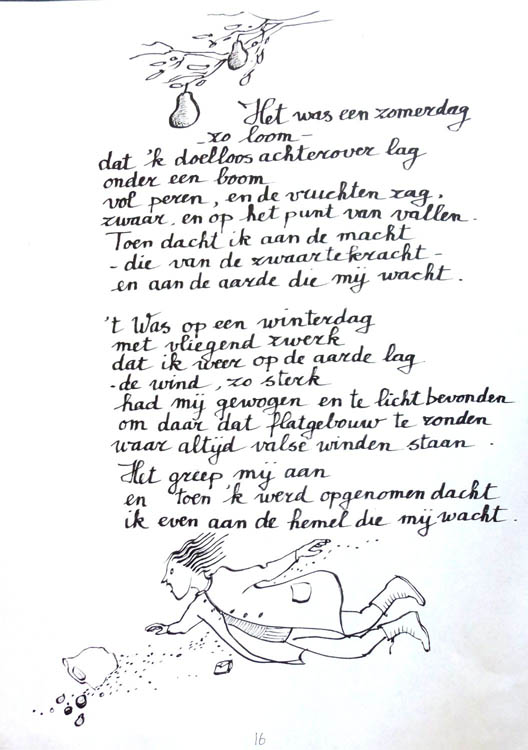 Het was een zomerdag
- zo loom -
dat 'k doelloos achterover lag
onder een boom
vol peren, en de vruchten zag,
zwaar, en op het punt van vallen.
Toen dacht ik aan de macht
- die van de zwaartekracht -
en aan de aarde die mij wacht.
't Was op een winterdag
met vliegend zwerk
dat ik weer op de aarde lag
- de wind, zo sterk
had mij gewogen en te licht bevonden
om daar dat flatgebouw te ronden
waar altijd valse winden staan.
Het greep mij aan
en toen 'k werd opgenomen dacht
ik even aan de hemel die mij wacht.
16